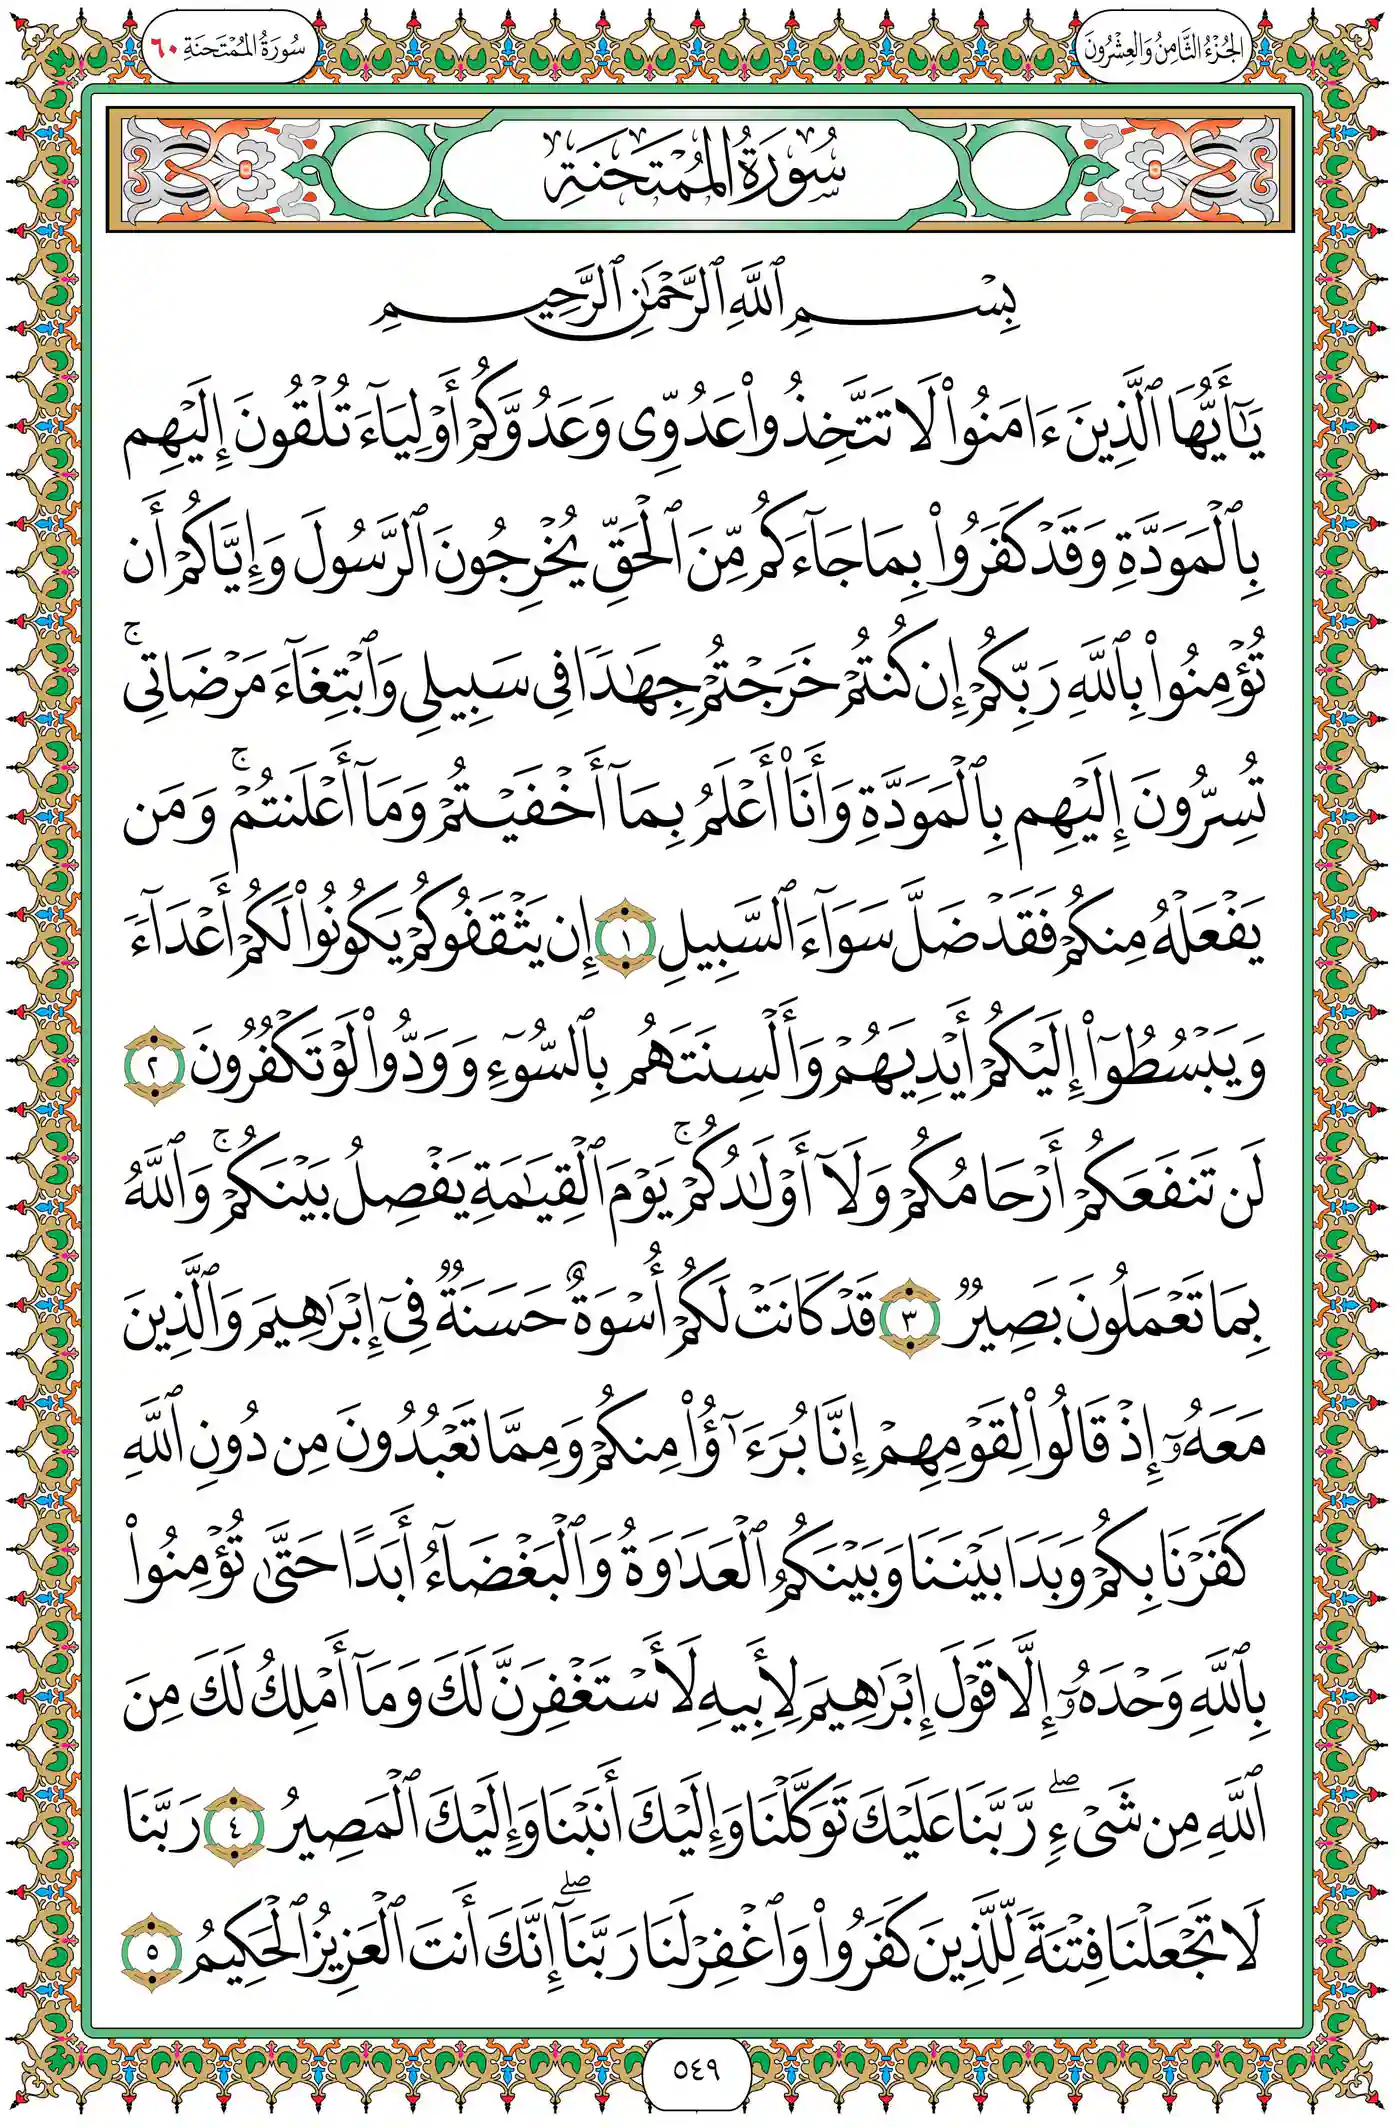 الجُزْءُ الثَّامِنُ وَالعِشْرُونَ
سُورَةُ المُمْتَحنَةِ ٦٠
سُورَةُ المُمْتَحنَةِ
بِسْمِ ٱللَّهِ ٱلرَّحْمَٰنِ ٱلرَّحِيمِ
يَٰٓأَيُّهَا ٱلَّذِينَ ءَامَنُوا۟ لَا تَتَّخِذُوا۟ عَدُوِّى وَعَدُوَّكُمْ أَوْلِيَآءَ تُلْقُونَ إِلَيْهِم
بِٱلْمَوَدَّةِ وَقَدْ كَفَرُوا۟ بِمَا جَآءَكُم مِّنَ ٱلْحَقِّ يُخْرِجُونَ ٱلرَّسُولَ وَإِيَّاكُمْ أَن
تُؤْمِنُوا۟ بِٱللَّهِ رَبِّكُمْ إِن كُنتُمْ خَرَجْتُمْ جِهَٰدًا فِى سَبِيلِى وَٱبْتِغَآءَ مَرْضَاتِى ۚ
تُسِرُّونَ إِلَيْهِم بِٱلْمَوَدَّةِ وَأَنَا۠ أَعْلَمُ بِمَآ أَخْفَيْتُمْ وَمَآ أَعْلَنتُمْ ۚ وَمَن
يَفْعَلْهُ مِنكُمْ فَقَدْ ضَلَّ سَوَآءَ ٱلسَّبِيلِ ١ إِن يَثْقَفُوكُمْ يَكُونُوا۟ لَكُمْ أَعْدَآءً
وَيَبْسُطُوٓا۟ إِلَيْكُمْ أَيْدِيَهُمْ وَأَلْسِنَتَهُم بِٱلسُّوٓءِ وَوَدُّوا۟ لَوْ تَكْفُرُونَ ٢
لَن تَنفَعَكُمْ أَرْحَامُكُمْ وَلَآ أَوْلَٰدُكُمْ ۚ يَوْمَ ٱلْقِيَٰمَةِ يَفْصِلُ بَيْنَكُمْ ۚ وَٱللَّهُ
بِمَا تَعْمَلُونَ بَصِيرٌ ٣ قَدْ كَانَتْ لَكُمْ أُسْوَةٌ حَسَنَةٌ فِىٓ إِبْرَٰهِيمَ وَٱلَّذِينَ
مَعَهُۥٓ إِذْ قَالُوا۟ لِقَوْمِهِمْ إِنَّا بُرَءَٰٓؤُا۟ مِنكُمْ وَمِمَّا تَعْبُدُونَ مِن دُونِ ٱللَّهِ
كَفَرْنَا بِكُمْ وَبَدَا بَيْنَنَا وَبَيْنَكُمُ ٱلْعَدَٰوَةُ وَٱلْبَغْضَآءُ أَبَدًا حَتَّىٰ تُؤْمِنُوا۟
بِٱللَّهِ وَحْدَهُۥٓ إِلَّا قَوْلَ إِبْرَٰهِيمَ لِأَبِيهِ لَأَسْتَغْفِرَنَّ لَكَ وَمَآ أَمْلِكُ لَكَ مِنَ
ٱللَّهِ مِن شَىْءٍ ۖ رَّبَّنَا عَلَيْكَ تَوَكَّلْنَا وَإِلَيْكَ أَنَبْنَا وَإِلَيْكَ ٱلْمَصِيرُ ٤ رَبَّنَا
لَا تَجْعَلْنَا فِتْنَةً لِّلَّذِينَ كَفَرُوا۟ وَٱغْفِرْ لَنَا رَبَّنَآ ۖ إِنَّكَ أَنتَ ٱلْعَزِيزُ ٱلْحَكِيمُ ٥
٥٤٩